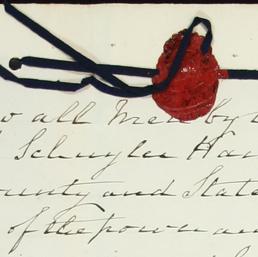 all Men by
Schuyler Ham
ounty and State
of the power an